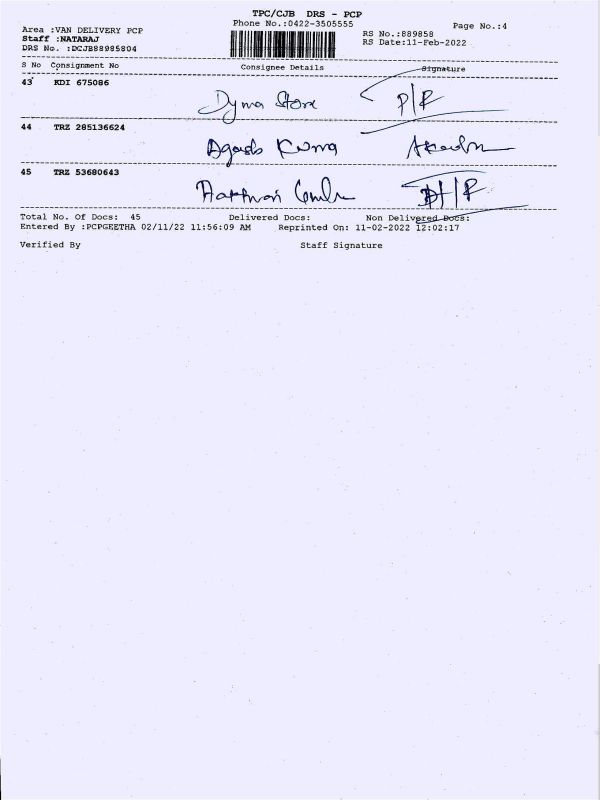 TPC/CJB DRS - PCP
Phone No.:0422-3505555
Page No.:4
Area :VAN DELIVERY PCP
Staff :NATARAJ
DRS No. :DCJB88985804
RS No.:889858
RS Date:11-Feb-2022
S No Consignment No Consignee Details Signature
43 KDI 675086
Dyna Store P/R
44 TRZ 285136624
45 TRZ 53680643
Total No. Of Docs: 45 Delivered Docs: Non Delivered Docs:
Entered By :PCPGEETHA 02/11/22 11:56:09 AM Reprinted On: 11-02-2022 12:02:17
Verified By Staff Signature